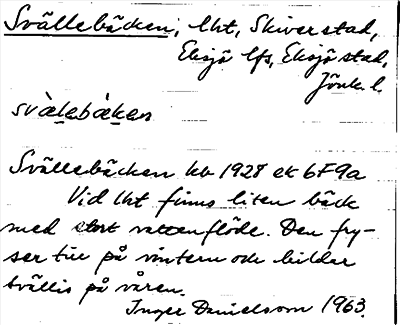 Svällebäcken, lht, Skiverstad,
Eksjö lfs, Eksjö stad,
Jönk. l.
svàlebàken
Svällebäcken hb 1928 ek 6F9a
Vid lht finns liten bäck
med stort vattenflöde. Den fry-
ser till på vintern och bildar
svällis på våren.
Inger Danielsson 1963.